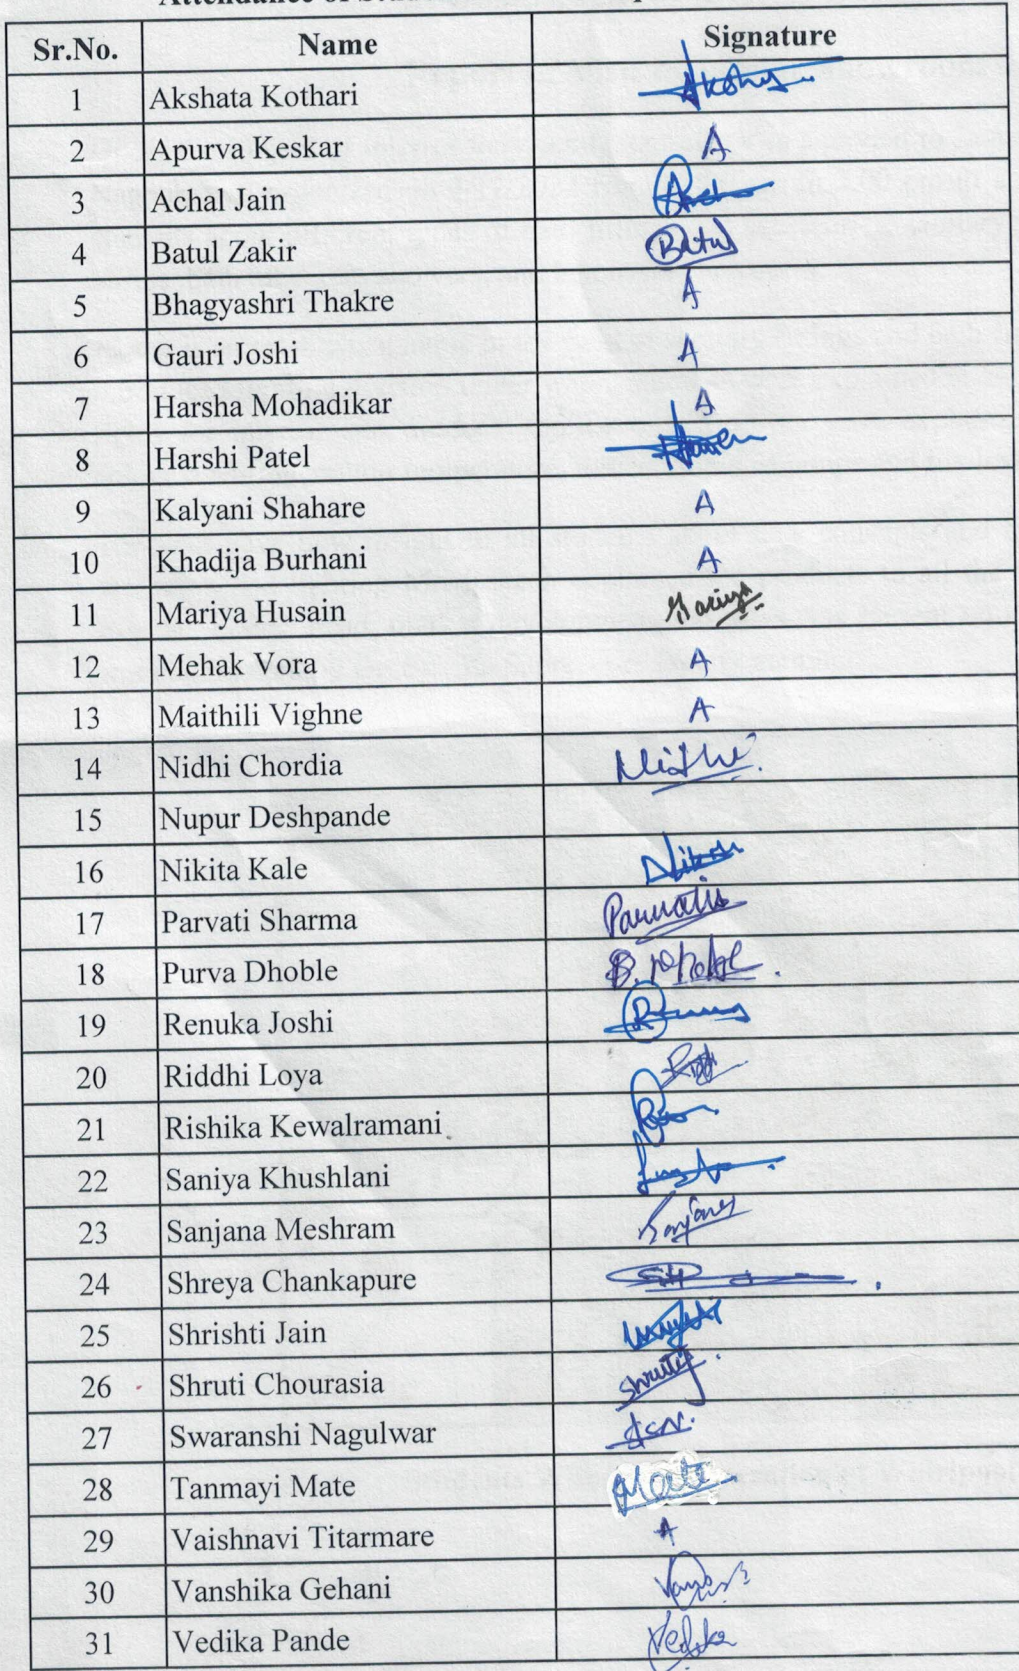 Sr.No. Name Signature
1 Akshata Kothari
2 Apurva Keskar A
3 Achal Jain
4 Batul Zakir Batul
5 Bhagyashri Thakre A
6 Gauri Joshi A
7 Harsha Mohadikar A
8 Harshi Patel
9 Kalyani Shahare A
10 Khadija Burhani A
11 Mariya Husain Mariya
12 Mehak Vora A
13 Maithili Vighne A
14 Nidhi Chordia Nidhi
15 Nupur Deshpande
16 Nikita Kale
17 Parvati Sharma
18 Purva Dhoble
19 Renuka Joshi
20 Riddhi Loya
21 Rishika Kewalramani
22 Saniya Khushlani
23 Sanjana Meshram
24 Shreya Chankapure
25 Shrishti Jain
26 Shruti Chourasia
27 Swaranshi Nagulwar
28 Tanmayi Mate
29 Vaishnavi Titarmare A
30 Vanshika Gehani
31 Vedika Pande Vedika